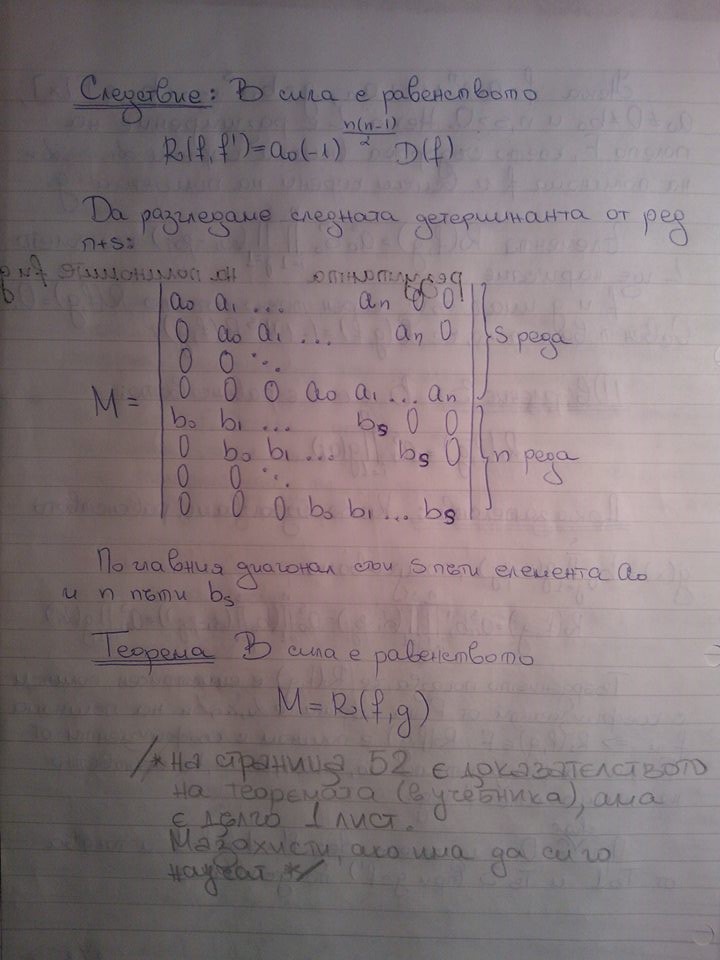 Следствие: В сила е равенството
R(f, f') = a₀(-1)^(n(n-1)/2) D(f)
Да разгледаме следната детерминанта от ред
n+s:
M =
a₀ a₁ ... aₙ 0 0
0 a₀ a₁ ... aₙ 0
0 0 ⋱
0 0 0 a₀ a₁ ... aₙ
} s реда
b₀ b₁ ... bₛ 0 0
0 b₀ b₁ ... bₛ 0
0 0 ⋱
0 0 0 b₀ b₁ ... bₛ
} n реда
По главния диагонал стои s пъти елемента a₀
и n пъти bₛ
Теорема В сила е равенството
M = R(f, g)
/* на страница 52 е доказателството
на теоремата (в учебника), ама
е дълго 1 лист.
Мазахисти, ако има да си го
научат */